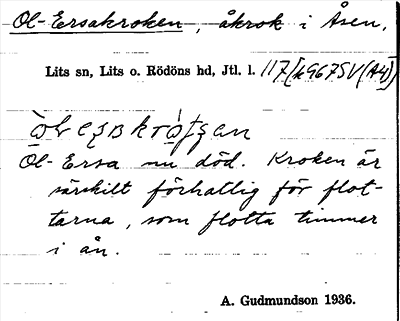 Ol-Ersakroken, åkrok i Åsen.
Lits sn, Lits o. Rödöns hd, Jtl. l. 117
Ol-Ersa nu död. Kroken är
särskilt förhatlig för flot-
tarna, som flotta timmer
i ån.
A. Gudmundson 1936.